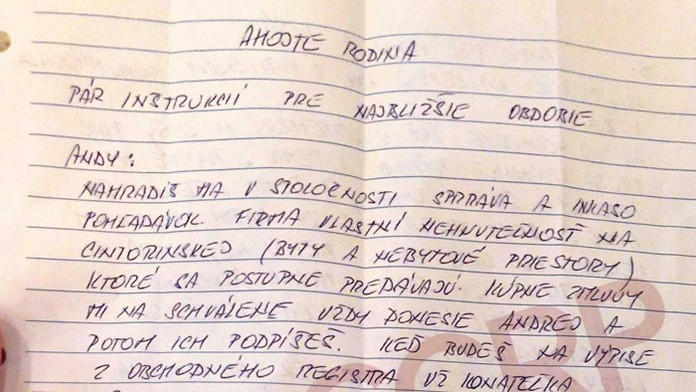 AHOJTE RODINA
PÁR INŠTRUKCIÍ PRE NAJBLIŽŠIE OBDOBIE
ANDY:
NAHRADÍŠ MA V SPOLOČNOSTI SPRÁVA A INKASO
POHĽADÁVOK. FIRMA VLASTNÍ NEHNUTEĽNOSŤ NA
CINTORINSKEJ (BYTY A NEBYTOVÉ PRIESTORY)
KTORÉ SA POSTUPNE PREDÁVAJÚ. KÚPNE ZMLUVY
MI NA SCHVÁLENIE VŽDY DONESIE ANDREJ A
POTOM ICH PODPÍŠEŠ. KEĎ BUDEŠ NA VÝPISE
Z OBCHODNÉHO REGISTRA UŽ KONATEĽKA